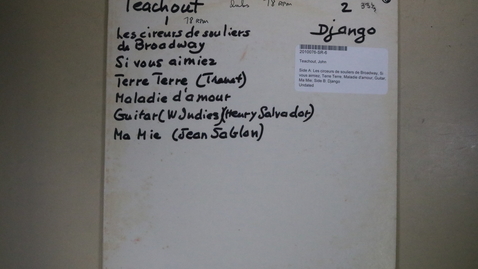 Teachout
1
78 RPM
78 RPM
2 33⅓
Les cireurs de souliers
de Broadway
Si vous aimiez
Terre Terre (Trenet)
Maladie d'amour
Guitar (W Indies)(Henry Salvador)
Ma Mie (Jean Sablon)
Django
Teachout, John
Side A: Les cireurs de souliers de Broadway, Si
vous aimiez, Terre Terre, Maladie d'amour, Guitar
Ma Mie, Side B: Django